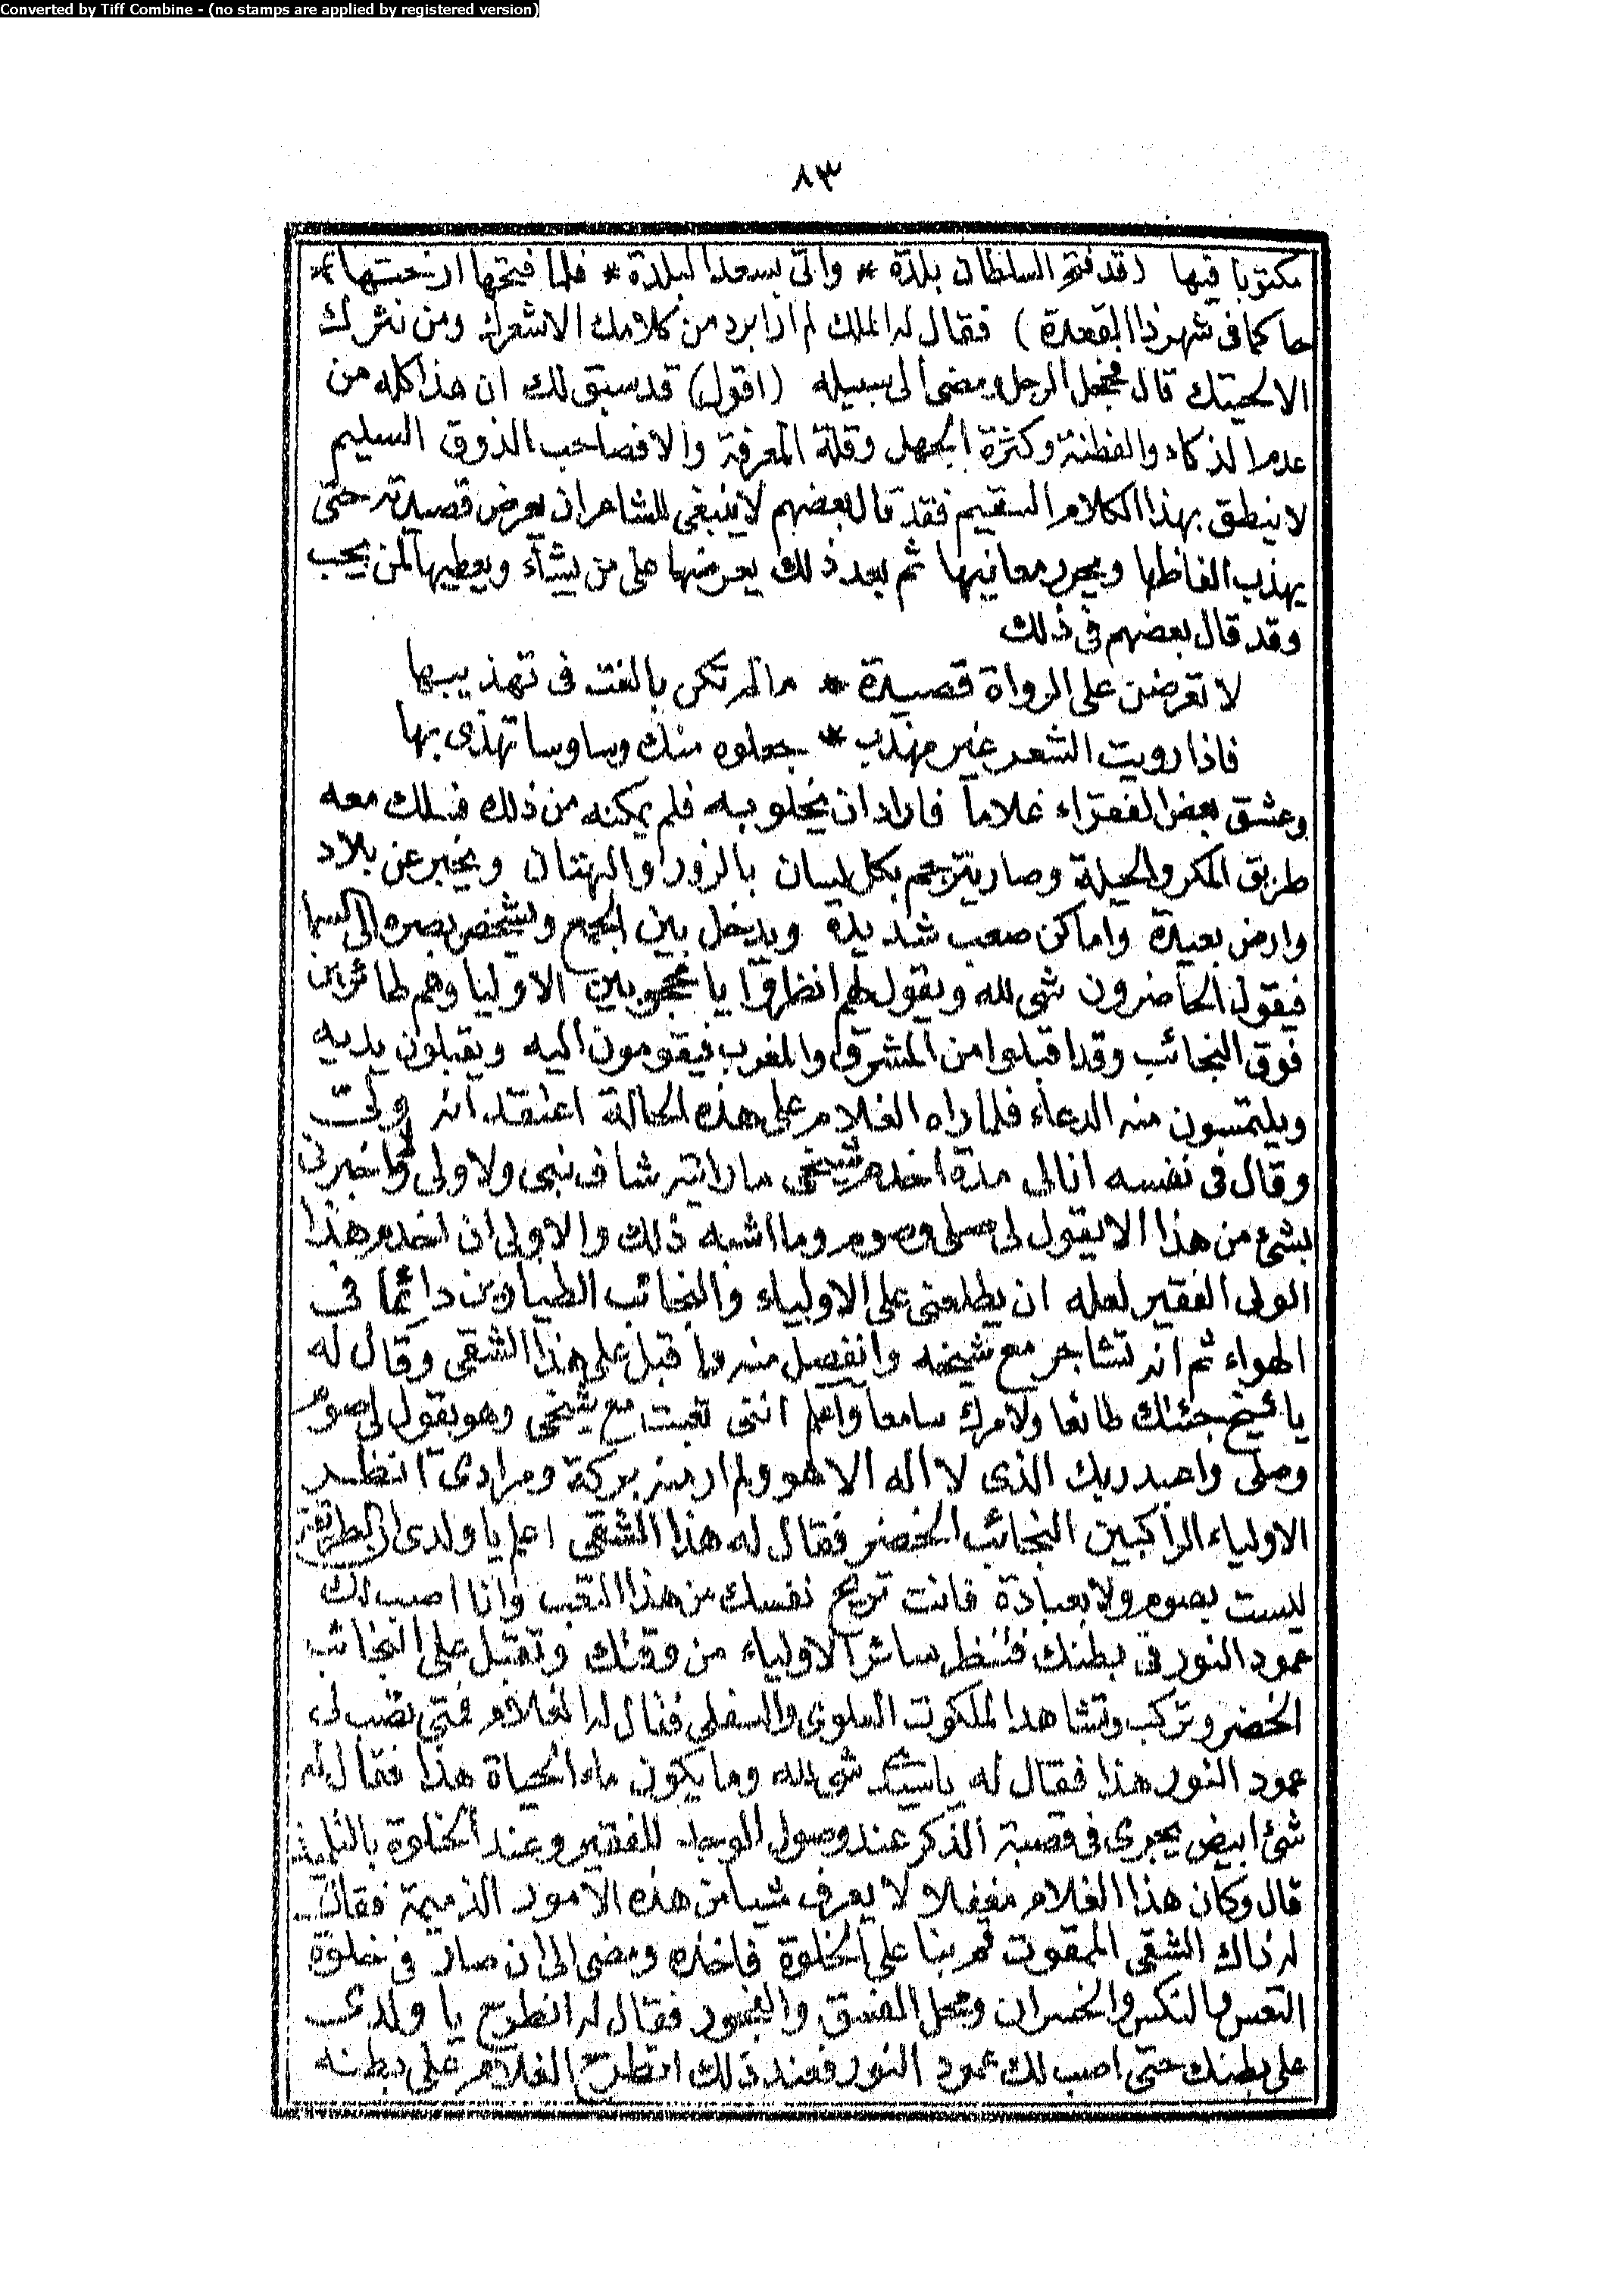 Converted by Tiff Combine - (no stamps are applied by registered version)
٨٣
مكتوبا فيها (قد فتح السلطان بلدة * واتى بسعد البلدة * فلما فتحها ارخعتها *
حاكما فى شهر ذا القعدة) فقال له الملك لم ار ابرد من كلامك الا شعرك ومن نثرك
الا لحيتك قال فخجل الرجل ومضى الى سبيله (اقول) قد سبق لك ان هذا كله من
عدم الذكاء والفطنة وكثرة الجهل وقلة المعرفة والا فصاحب الذوق السليم
لا ينطق بهذا الكلام السقيم فقد قال بعضهم لا ينبغى للشاعر ان يعرض قصيدته حتى
يهذب الفاظها ويحرر معانيها ثم بعد ذلك يعرضها على من يشآء ويعطيها لمن يحب
وقد قال بعضهم فى ذلك
لا تعرضن على الرواة قصيدة * ما لم تكن بالغت فى تهذيبها
فاذا رويت الشعر غير مهذب * جعلوه منك وساوسا تهذى بها
وعشق بعض الفقراء غلاما فاراد ان يختلو به فلم يمكنه من ذلك فسلك معه
طريق المكر والحيلة وصار يترجم بكل لسان بالزور والبهتان ويخبر عن بلاد
وارض بعيدة واماكن صعب شديده ويدخل بين الجمع ويشخص بصره الى السما
فيقول الحاضرون شى لله ويقول لهم انظروا يا محجوبين الاوليا وهم طائرين
فوق النجائب وقد اقبلوا من المشرق والمغرب فيقومون اليه ويقبلون يديه
ويلتمسون منه الدعاء فلما راه الغلام على هذه الحالة اعتقد انه ولى
وقال فى نفسه انا لى مدة اخدم شيخى ما رايته شاف نبى ولا ولى ولا خبرنى
بشئ من هذا الا يقول لى صلى وصوم وما اشبه ذلك والاولى ان اخدم هذا
الولى الفقير لعله ان يطلعنى على الاولياء والنجائب الطيارين دائما فى
الهواء ثم انه تشاجر مع شيخه وانفصل منه واقبل على هذا الشقى وقال له
يا شيخ جئتك طائعا ولامرك سامعا واعلم اننى تعبت مع شيخى وهو يقول لى صوم
وصلى واعبد ربك الذى لا اله الا هو ولم ار منه بركة ومرادى انظر
الاولياء الراكبين النجائب الخضر فقال له هذا الشقى اعلم يا ولدى ان الطريقة
ليست بصوم ولا بعبادة فانت تريح نفسك من هذا التعب وانا اصب لك
عمود النور فى بطنك فتنظر سائر الاولياء من وقتك وتقبل على النجائب
الخضر وتركب وتشاهد الملكوت العلوى والسفلى فقال له الغلام فمتى تصب لى
عمود النور هذا فقال له يا شيخ شى لله وما يكون ماء الحياة هذا فقال له
شئ ابيض يجرى فى قصبة الذكر عند وصول الوجد للفقير وعند الخلوة
قال وكان هذا الغلام مغفلا لا يعرف شيا من هذه الامور الذميمة فقال
له ذاك الشقى الممقوت قم بنا على الخلوة فاخذه ومضى الى ان صار فى خلوة
التعس والنكس والخسران ومحل الفسق والفجور فقال له انطرح يا ولدى
على بطنك حتى اصب لك عمود النور فعند ذلك انطرح الغلام على بطنه